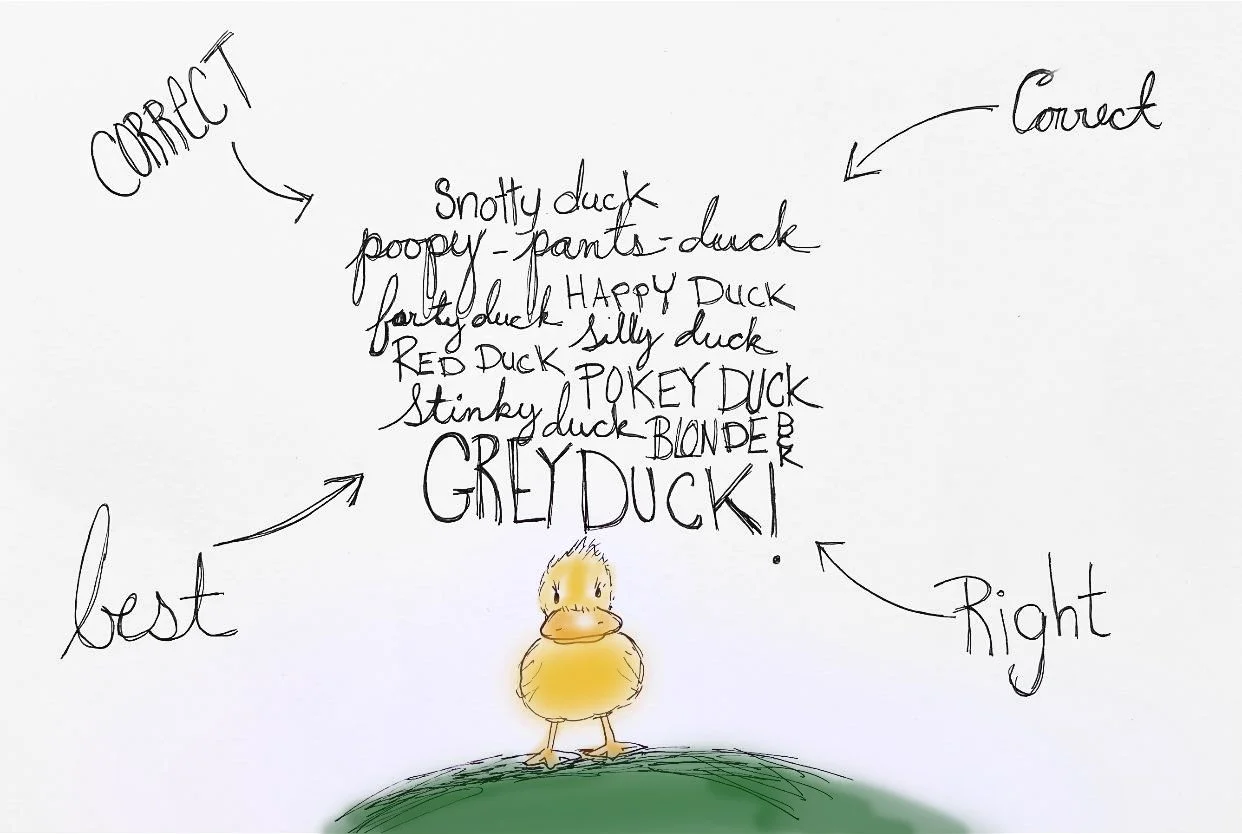 CORRECT
Correct
Snotty duck
poopy-pants-duck
farty duck HAPPY DUCK
silly duck
RED DUCK
POKEY DUCK
Stinky duck BLONDE DUCK
GREY DUCK!
best
Right